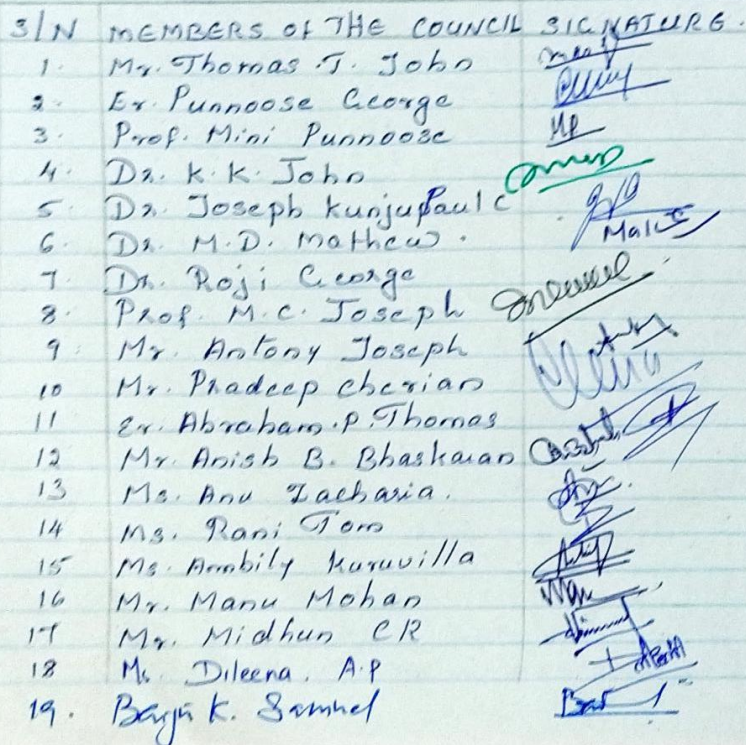 S/N MEMBERS OF THE COUNCIL SIGNATURE.
1. Mr. Thomas T. John
2. Er. Punnoose George
3. Prof. Mini Punnoose MP
4. Dr. K. K. John
5. Dr. Joseph KunjuPaul C
6. Dr. M.D. Mathew.
7. Dr. Roji George
8. Prof. M.C. Joseph
9 Mr. Antony Joseph
10 Mr. Pradeep Cherian
11 Er. Abraham.P.Thomas
12 Mr. Anish B. Bhaskaran
13 Ms. Anu Zacharia.
14 Ms. Rani Tom
15 Ms. Ambily Kuruvilla
16 Mr. Manu Mohan
17 Mr. Midhun CR
18 Ms Dileena. A.P
19. K. Samuel